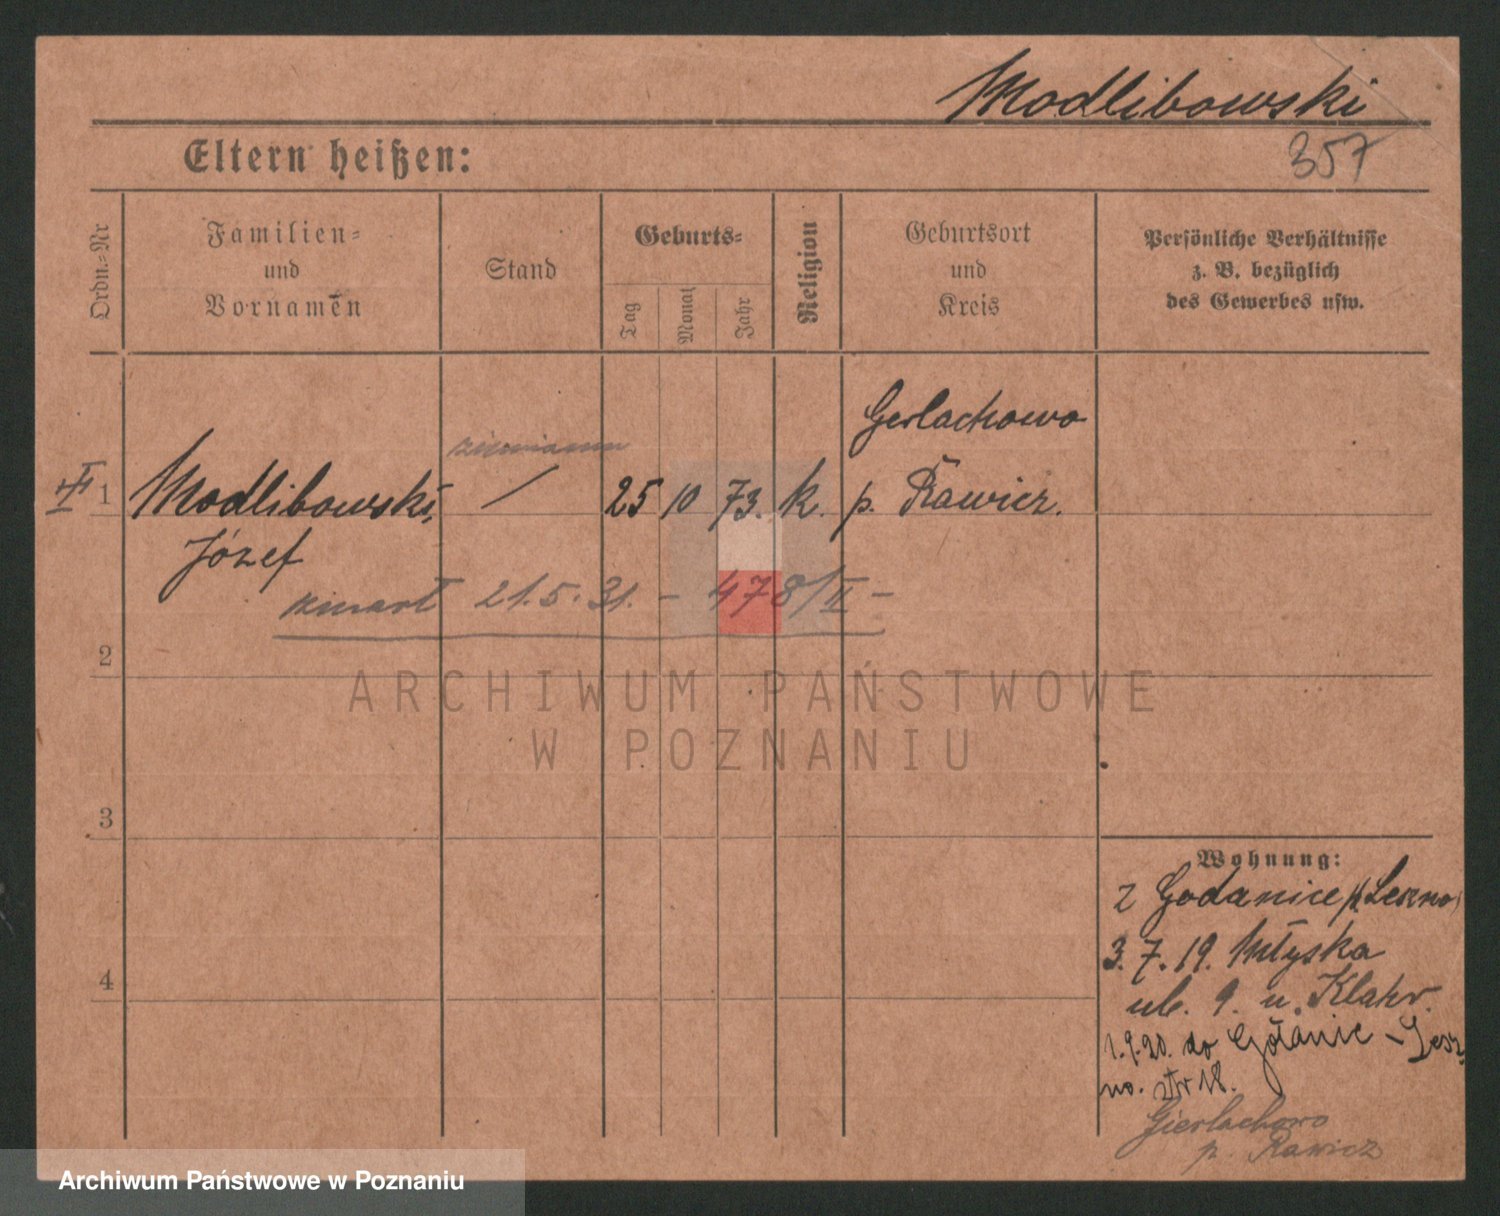 Modlibowski
357
Eltern heißen:
Ordn.-Nr
Familien-
und
Vornamen
Stand
Geburts-
Tag
Monat
Jahr
Religion
Geburtsort
und
Kreis
Persönliche Verhältnisse
z. B. bezüglich
des Gewerbes usw.
Gerlachowo
ziemianin
1 Modlibowski, / 25 10 73. k. p. Rawicz.
Józef
zmarł 21.5.31. – 478/II –
2
ARCHIWUM PAŃSTWOWE
W POZNANIU
3
Wohnung:
z Godanice p/Leszno
3.7.19. Młyńska
ul. 9. u.
4
1.9.20. do – Lesz
no. str 18.
Gierlachowo
p. Rawicz
Archiwum Państwowe w Poznaniu